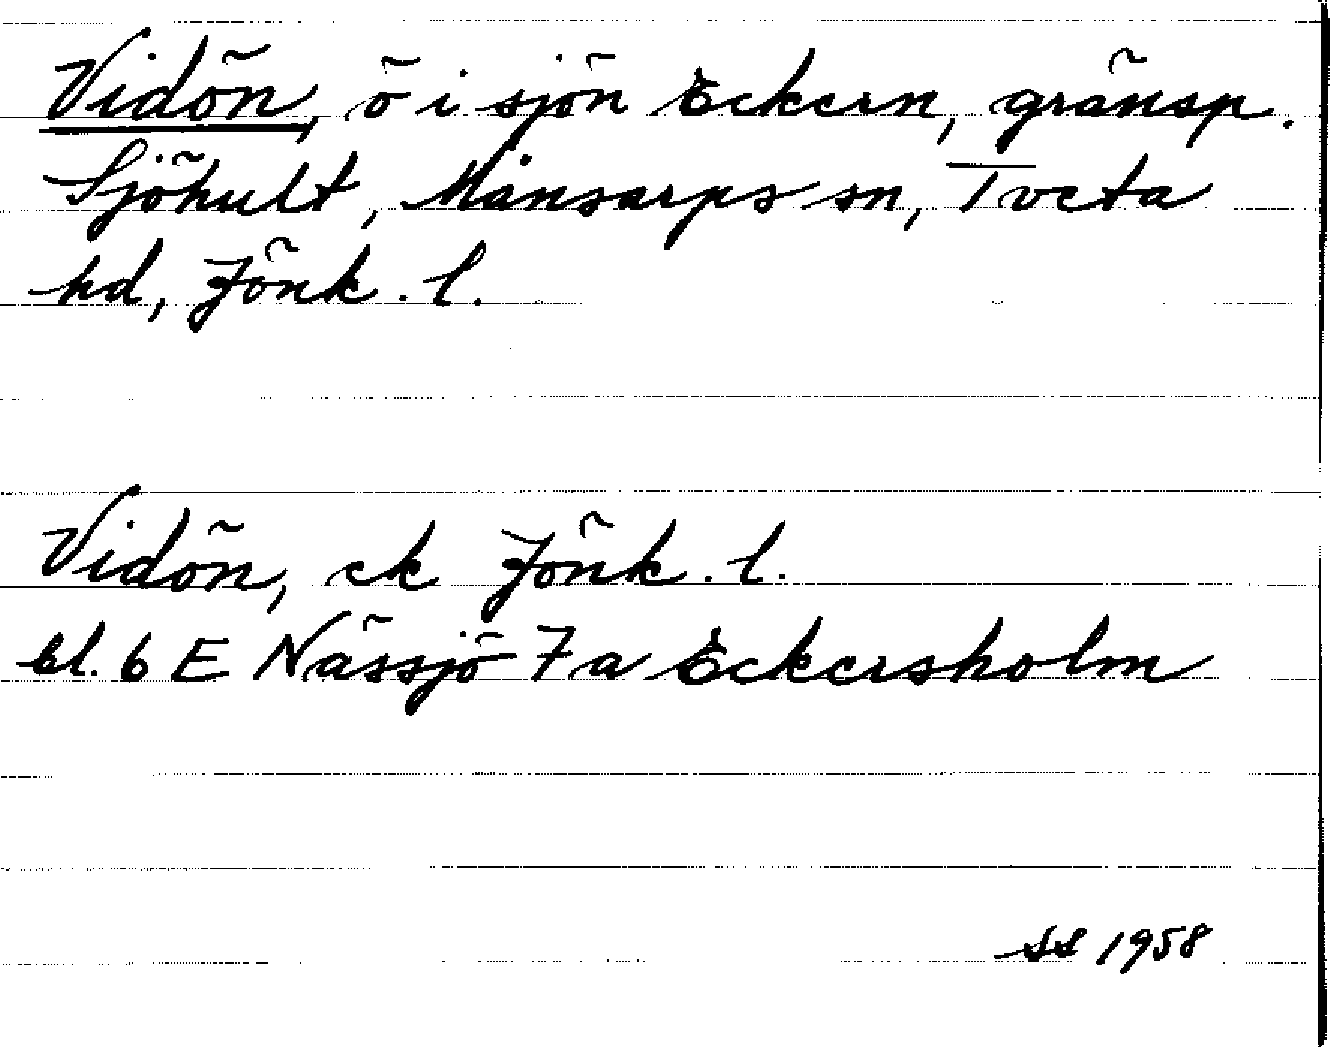 Vidön, ö i sjön Eckern, gränsp.
Sjöhult, Månsarps sn, Tveta
hd, Jönk. l.
Vidön, ek Jönk. l.
bl. 6 E Nässjö 7 a Eckersholm
SS 1958